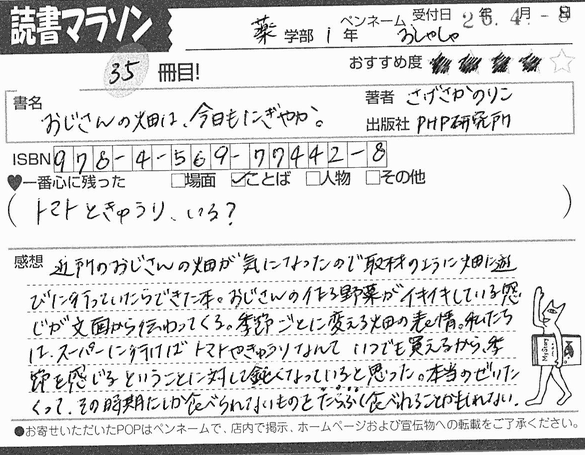 読書マラソン
薬 学部 1 年 ペンネーム おしゃしゃ 受付日 26年4月-8日
35 冊目! おすすめ度
書名 おじさんの畑は、今日もにぎやか。 著者 さげさかのりこ
出版社 PHP研究所
ISBN 978-4-569-77442-8
♥一番心に残った □場面 ☑ことば □人物 □その他
(トマトときゅうり、いる?)
感想 近所のおじさんの畑が気になったので取材のように畑に遊
びに行っていたらできた本。おじさんの作る野菜がイキイキしている感
じが文面から伝わってくる。季節ごとに変える畑の表情。私たち
は、スーパーに行けばトマトやきゅうりなんていつでも買えるから、季
節を感じるということに対して鈍くなっていると思った。本当のぜいた
くって、その時期にしか食べられないものをたらふく食べれることかもしれない。
●お寄せいただいたPOPはペンネームで、店内で掲示、ホームページおよび宣伝物への転載をご了承ください。